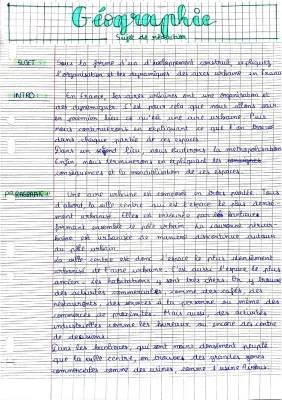 Géographie
Sujet de rédaction
SUJET : Sous la forme d'un développement construit, expliquez
l'organisation et les dynamiques des aires urbaine en France
INTRO : En France, les aires urbaines ont une organisation et
des dynamiques. C'est pour cela que nous allons voir
en premier lieu ce qu'est une aire urbaine. Puis
nous continuerons en expliquant ce que l'on trouve
dans chaque partie de ces espaces.
Dans un second lieu nous étudierons la métropolisation
Enfin, nous terminerons en expliquant les
conséquences et la mondialisation de ces espaces.
Une aire urbaine est composée en trois parties. Tout
d'abord la ville centre qui est l'espace le plus densé-
ment urbanisé. Elle est entourée par banlieues
formant ensemble le pôle urbain. La couronne périur-
baine est urbanisée de manière discontinue autour
du pôle urbain.
La ville centre est donc l'espace le plus densément
urbanisé de l'aire urbaine. C'est aussi l'espace le plus
ancien : les habitations y sont très chers. On y trouve
des activités commerciales comme des cafés, des
restaurants, des services à la personne ou même des
commerces de proximités. Mais aussi des activités
industrielles comme les bureaux ou encore des centre
de décisions.
Dans les banlieues, qui sont moins densément peuplé
que la ville centre, on trouve des grandes zones
commerciales comme des usines, comme l'usine Airbus.